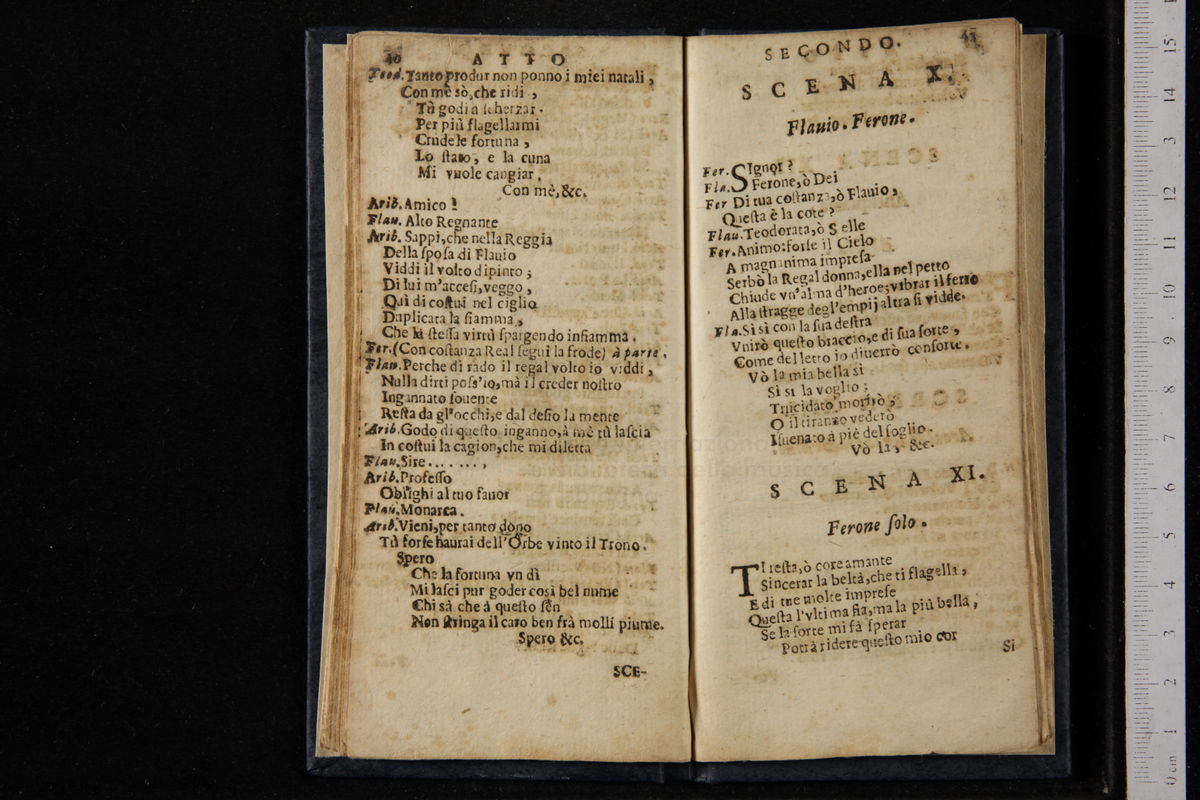 40 ATTO
Teod. Tanto produr non ponno i miei natali,
Con mè sò, che ridi,
Tù godi à scherzar.
Per più flagellarmi
Crudele fortuna,
Lo stato, e la cuna
Mi vuole cangiar.
Con mè, &c.
Arib. Amico!
Flau. Alto Regnante
Arib. Sappi, che nella Reggia
Della sposa di Flauio
Viddi il volto dipinto;
Di lui m'accesi, veggo,
Quì di costui nel ciglio
Duplicata la fiamma,
Che la stessa virtù spargendo infiamma.
Fer. (Con costanza Real segui la frode) à parte.
Flau. Perche di rado il regal volto io viddi,
Nulla dirti poss'io, mà il creder nostro
Ingannato souente
Resta da gl'occhi, e dal desio la mente
Arib. Godo di questo inganno, à mè tù lascia
In costui la cagion, che mi diletta
Flau. Sire.......,
Arib. Professo
Oblighi al tuo fauor
Flau. Monarca.
Arib. Vieni, per tanto dono
Tù forse haurai dell'Orbe vinto il Trono.
Spero
Che la fortuna vn dì
Mi lasci pur goder così bel nume
Chi sà che à questo sen
Non stringa il caro ben frà molli piume.
Spero &c.
SCE-
SECONDO. 41
SCENA X.
Flauio. Ferone.
Fer. SIgnor?
Fla. Ferone, ò Dei
Fer Di tua costanza, ò Flauio,
Questa è la cote?
Flau. Teodorata, ò Stelle
Fer. Animo: forse il Cielo
A magnanima impresa
Serbò la Regal donna, ella nel petto
Chiude vn'alma d'heroe; vibrar il ferro
Alla stragge degl'empij altra si vidde.
Fla. Sì sì con la sua destra
Vnirò questo braccio, e di sua sorte,
Come del letto io diuerrò consorte.
Vò la mia bella sì
Sì sì la voglio;
Trucidato morirò,
O il tiranno vederò
Isuenato à piè del soglio.
Vò la, &c.
SCENA XI.
Ferone solo.
TI resta, ò core amante
Sincerar la beltà, che ti flagella,
E di tue molte imprese
Questa l'vltima fia, ma la più bella,
Se la sorte mi fà sperar
Potrà ridere questo mio cor
Si